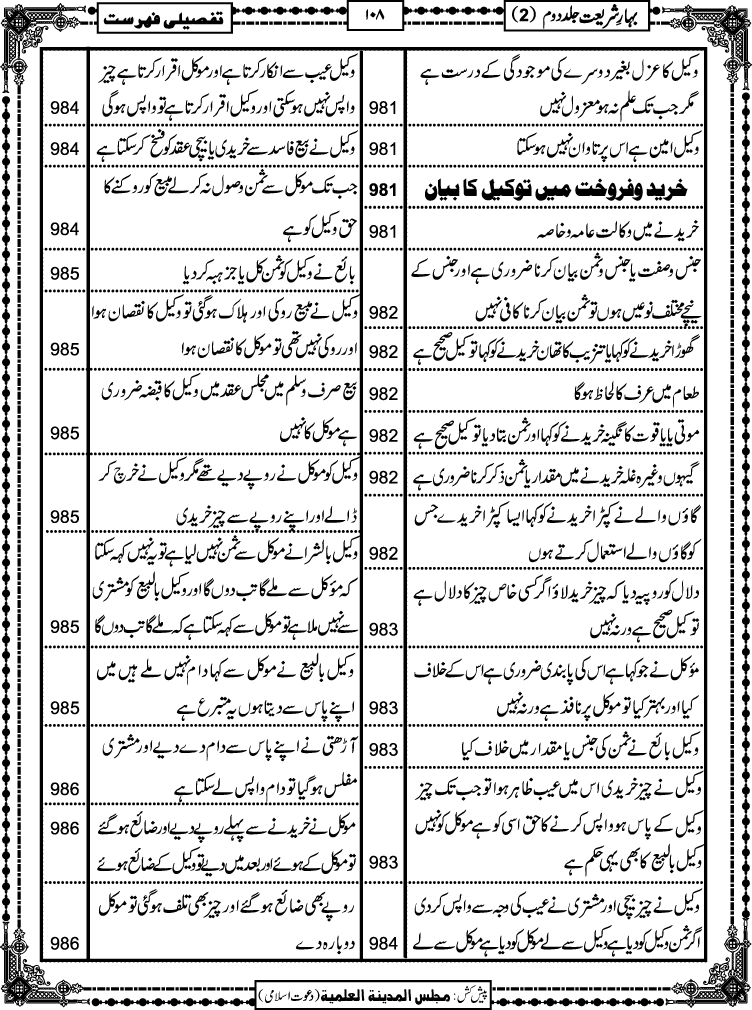 بہارِ شریعت جلد دوم (2)
۱۰۸
تفصیلی فہرست
وکیل کا عزل بغیر دوسرے کی موجودگی کے درست ہے
مگر جب تک علم نہ ہو معزول نہیں 981
وکیل امین ہے اس پر تاوان نہیں ہوسکتا 981
خرید وفروخت میں توکیل کا بیان 981
خریدنے میں وکالت عامہ و خاصہ 981
جنس و صفت یا جنس و ثمن بیان کرنا ضروری ہے اور جنس کے
نیچے مختلف نوعیں ہوں تو ثمن بیان کرنا کافی نہیں 982
گھوڑا خریدنے کو کہا یا تنزیب کا تھان خریدنے کو کہا توکیل صحیح ہے 982
طعام میں عرف کا لحاظ ہوگا 982
موتی یا یاقوت کا نگینہ خریدنے کو کہا اور ثمن بتا دیا توکیل صحیح ہے 982
گیہوں وغیرہ غلہ خریدنے میں مقدار یا ثمن ذکر کرنا ضروری ہے 982
گاؤں والے نے کپڑا خریدنے کو کہا ایسا کپڑا خریدے جس
کو گاؤں والے استعمال کرتے ہوں 982
دلال کو روپیہ دیا کہ چیز خرید لاؤ اگر کسی خاص چیز کا دلال ہے
توکیل صحیح ہے ورنہ نہیں 983
مؤکل نے جو کہا ہے اس کی پابندی ضروری ہے اس کے خلاف
کیا اور بہتر کیا تو موکل پر نافذ ہے ورنہ نہیں 983
وکیل بائع نے ثمن کی جنس یا مقدار میں خلاف کیا 983
وکیل نے چیز خریدی اس میں عیب ظاہر ہوا تو جب تک چیز
وکیل کے پاس ہو واپس کرنے کا حق اسی کو ہے موکل کو نہیں
وکیل بالبیع کا بھی یہی حکم ہے 983
وکیل نے چیز بیچی اور مشتری نے عیب کی وجہ سے واپس کردی
اگر ثمن وکیل کو دیا ہے وکیل سے لے موکل کو دیا ہے موکل سے لے 984
وکیل عیب سے انکار کرتا ہے اور موکل اقرار کرتا ہے چیز
واپس نہیں ہوسکتی اور وکیل اقرار کرتا ہے تو واپس ہوگی 984
وکیل نے بیع فاسد سے خریدی یا بیچی عقد کو فسخ کرسکتا ہے 984
جب تک موکل سے ثمن وصول نہ کرلے مبیع کو روکنے کا
حق وکیل کو ہے 984
بائع نے وکیل کو ثمن کل یا جز ہبہ کر دیا 985
وکیل نے مبیع روکی اور ہلاک ہوگئی تو وکیل کا نقصان ہوا
اور روکی نہیں تھی تو موکل کا نقصان ہوا 985
بیع صرف وسلم میں مجلس عقد میں وکیل کا قبضہ ضروری
ہے موکل کا نہیں 985
وکیل کو موکل نے روپے دیے تھے مگر وکیل نے خرچ کر
ڈالے اور اپنے روپے سے چیز خریدی 985
وکیل بالشرا نے موکل سے ثمن نہیں لیا ہے تو یہ نہیں کہہ سکتا
کہ مؤکل سے ملے گا تب دوں گا اور وکیل بالبیع کو مشتری
سے نہیں ملا ہے تو موکل سے کہہ سکتا ہے کہ ملے گا تب دوں گا 985
وکیل بالبیع نے موکل سے کہا دام نہیں ملے ہیں میں
اپنے پاس سے دیتا ہوں یہ متبرع ہے 985
آڑھتی نے اپنے پاس سے دام دے دیے اور مشتری
مفلس ہوگیا تو دام واپس لے سکتا ہے 986
موکل نے خریدنے سے پہلے روپے دیے اور ضائع ہوگئے 986
تو موکل کے ہوئے اور بعد میں دیے تو وکیل کے ضائع ہوئے
روپے بھی ضائع ہوگئے اور چیز بھی تلف ہوگئی تو موکل
دوبارہ دے 986
پیش کش: مجلس المدینۃ العلمیۃ (دعوت اسلامی)